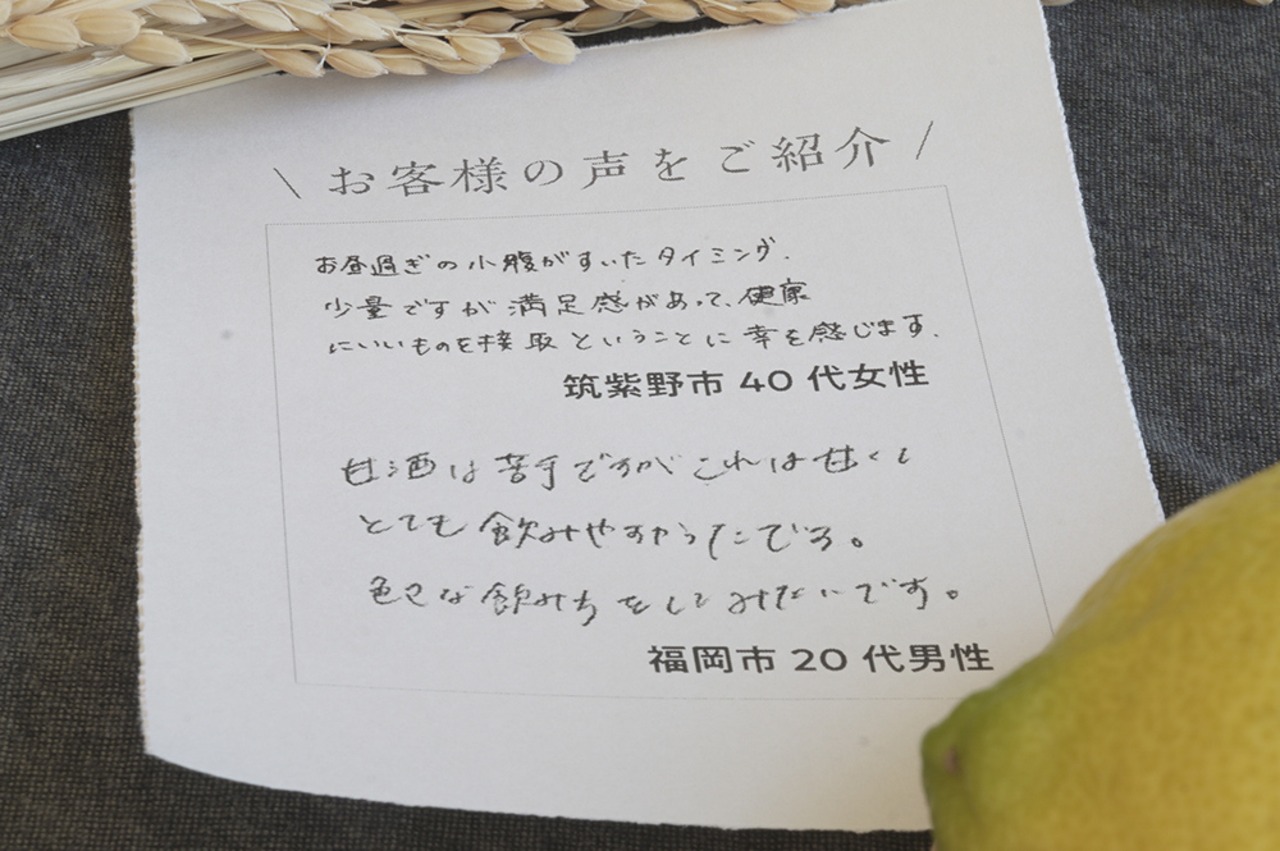 \ お客様の声をご紹介 /
お昼過ぎの小腹がすいたタイミング.
少量ですが満足感があって、健康
にいいものを接取ということに幸を感じます.
筑紫野市 40 代女性
甘酒は苦手ですがこれは甘くし
とても飲みやすかったです。
色々な飲み方をしてみたいです。
福岡市 20 代男性